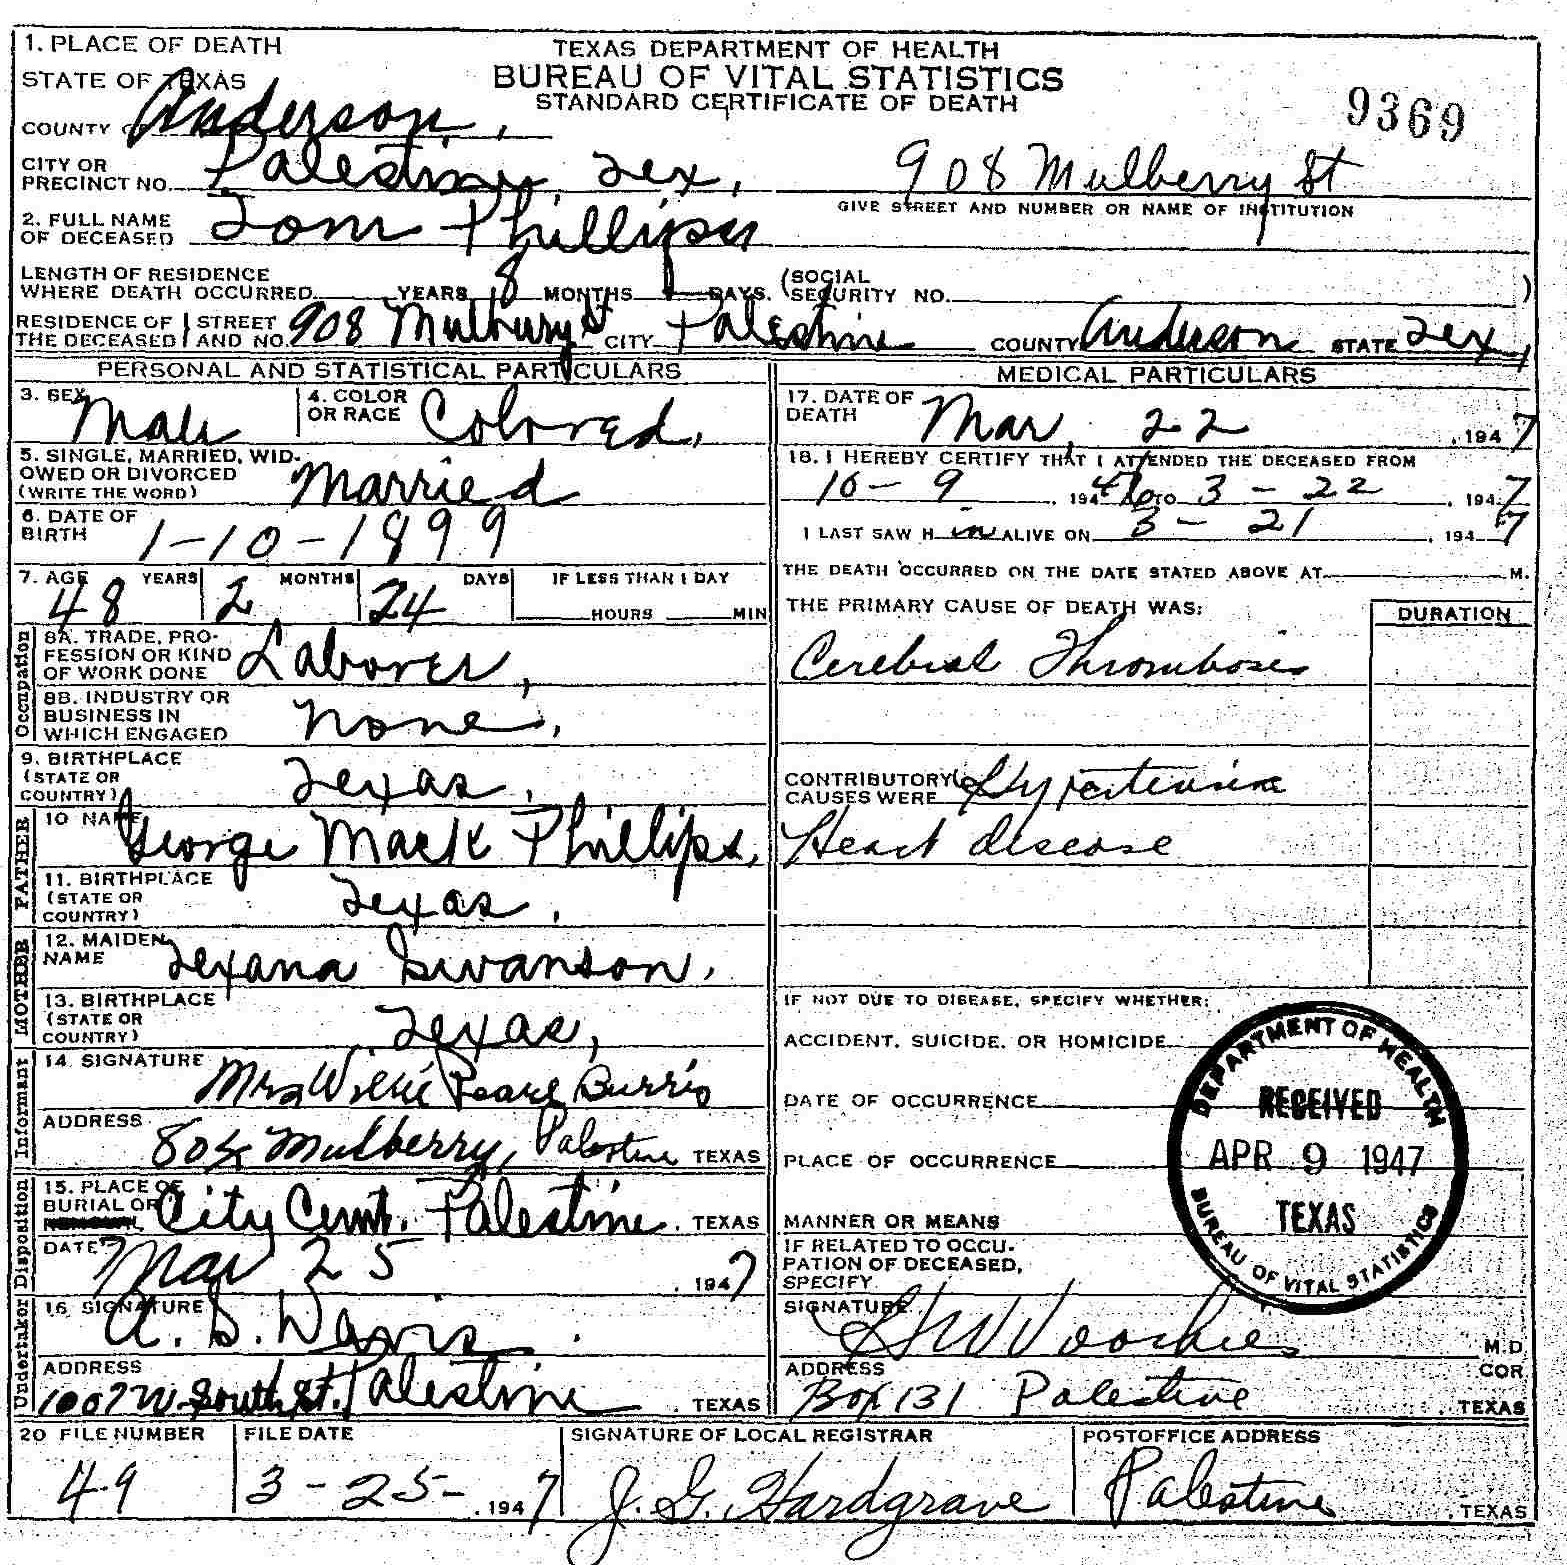 1. PLACE OF DEATH
TEXAS DEPARTMENT OF HEALTH
STATE OF TEXAS
BUREAU OF VITAL STATISTICS
STANDARD CERTIFICATE OF DEATH
9369
COUNTY OF Anderson,
CITY OR PRECINCT NO. Palestine, Tex, 908 Mulberry St
GIVE STREET AND NUMBER OR NAME OF INSTITUTION
2. FULL NAME OF DECEASED Tom Phillips
LENGTH OF RESIDENCE WHERE DEATH OCCURRED YEARS 8 MONTHS DAYS. (SOCIAL SECURITY NO. )
RESIDENCE OF THE DECEASED STREET AND NO. 908 Mulbury St CITY Palestine COUNTY Anderson STATE Tex,
PERSONAL AND STATISTICAL PARTICULARS
3. SEX Male 4. COLOR OR RACE Colored,
5. SINGLE, MARRIED, WIDOWED OR DIVORCED (WRITE THE WORD) Married
6. DATE OF BIRTH 1-10-1899
7. AGE 48 YEARS 2 MONTHS 24 DAYS IF LESS THAN 1 DAY HOURS MIN
Occupation
8A. TRADE, PROFESSION OR KIND OF WORK DONE Laborer,
8B. INDUSTRY OR BUSINESS IN WHICH ENGAGED None,
9. BIRTHPLACE (STATE OR COUNTRY) Texas,
FATHER
10 NAME George Mack Phillips,
11. BIRTHPLACE (STATE OR COUNTRY) Texas,
MOTHER
12. MAIDEN NAME Texana Swanson,
13. BIRTHPLACE (STATE OR COUNTRY) Texas,
Informant
14. SIGNATURE Mrs Willie Pearl Burris
ADDRESS Mulberry, Palestine TEXAS
Disposition
15. PLACE OF BURIAL OR REMOVAL City Cemt. Palestine. TEXAS
DATE Mar 25, 1947
Undertaker
16. SIGNATURE A. S. Davis.
ADDRESS 1007 W. South St. Palestine, TEXAS
MEDICAL PARTICULARS
17. DATE OF DEATH Mar, 22, 1947
18. I HEREBY CERTIFY THAT I ATTENDED THE DECEASED FROM
10-9, 1946 TO 3-22, 1947
I LAST SAW H im ALIVE ON 3-21, 1947
THE DEATH OCCURRED ON THE DATE STATED ABOVE AT M.
THE PRIMARY CAUSE OF DEATH WAS: DURATION
Cerebral Thrombosis
CONTRIBUTORY CAUSES WERE Hypertensive
Heart disease
IF NOT DUE TO DISEASE, SPECIFY WHETHER:
ACCIDENT, SUICIDE, OR HOMICIDE
DATE OF OCCURRENCE
PLACE OF OCCURRENCE
MANNER OR MEANS
IF RELATED TO OCCUPATION OF DECEASED, SPECIFY
DEPARTMENT OF HEALTH
RECEIVED
APR 9 1947
TEXAS
BUREAU OF VITAL STATISTICS
SIGNATURE Voorhies M.D.
COR
ADDRESS Box 131 Palestine, TEXAS
20 FILE NUMBER 49
FILE DATE 3-25-, 1947
SIGNATURE OF LOCAL REGISTRAR J. G. Hardgrave
POSTOFFICE ADDRESS Palestine, TEXAS